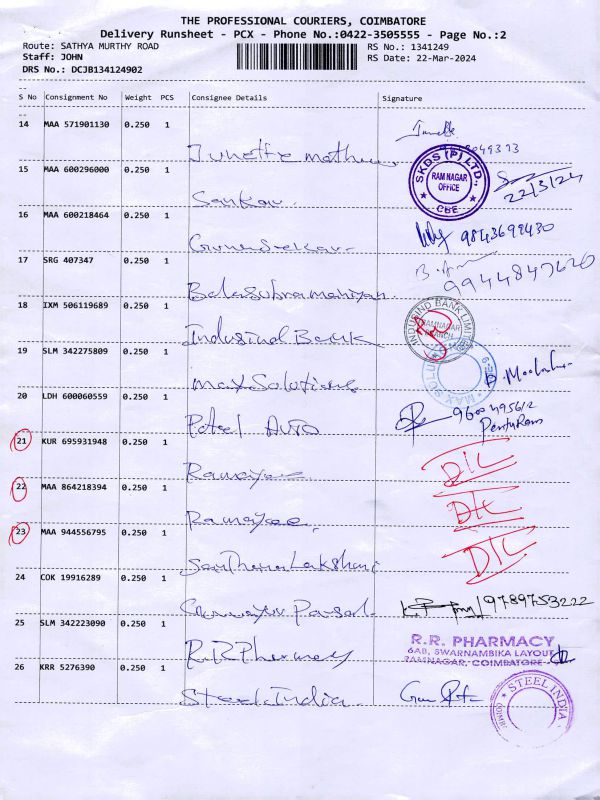 THE PROFESSIONAL COURIERS, COIMBATORE
Delivery Runsheet - PCX - Phone No.:0422-3505555 - Page No.:2
Route: SATHYA MURTHY ROAD
RS No.: 1341249
Staff: JOHN
RS Date: 22-Mar-2024
DRS No.: DCJB134124902
S No Consignment No Weight PCS Consignee Details Signature
14 MAA 571901130 0.250 1
15 MAA 600296000 0.250 1 Sankar.
SKDS (P) LTD., RAM NAGAR OFFICE CBE
22/3/24
16 MAA 600218464 0.250 1 Gunasekar
9843699430
17 SRG 407347 0.250 1 Balasubramaniyan
9944847620
18 IXM 506119689 0.250 1 Indusind Bank
INDUSIND BANK LIMITED RAMNAGAR BRANCH
19 SLM 342275809 0.250 1 Max Solutions
20 LDH 600060559 0.250 1 Patel Auto
9600495612
21 KUR 695931948 0.250 1 Ramayee
D/L
22 MAA 864218394 0.250 1 Ramayee.
D/L
23 MAA 944556795 0.250 1 Santhana Lakshmi
D/L
24 COK 19916289 0.250 1
9789753222
25 SLM 342223090 0.250 1 R.R Pharmacy
R.R. PHARMACY
6AB, SWARNAMBIKA LAYOUT
RAMNAGAR, COIMBATORE
26 KRR 5276390 0.250 1 Steel India.
STEEL INDIA